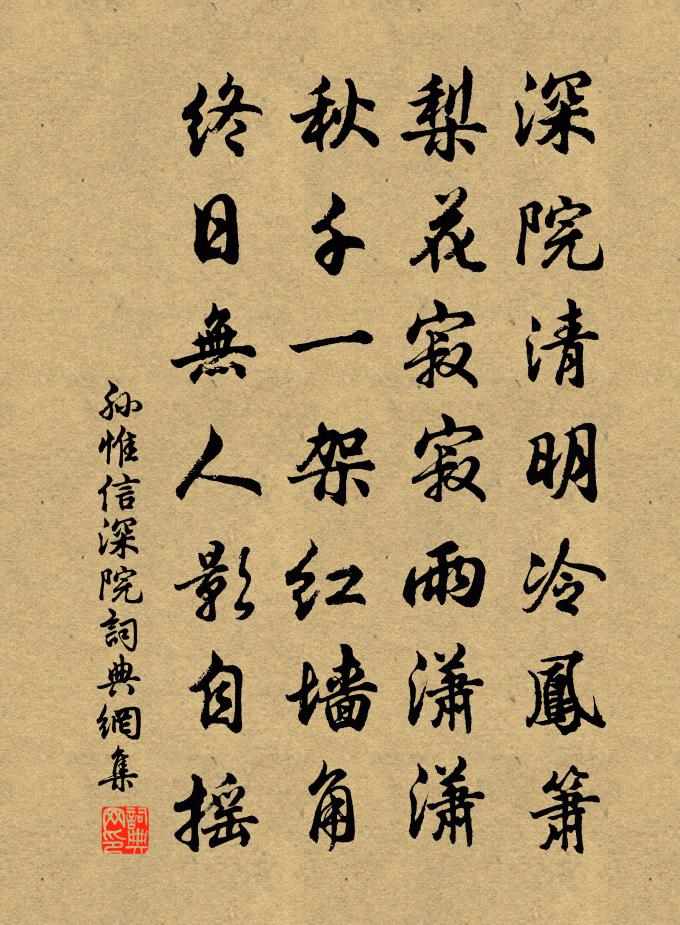 深院清明冷鳳簫
梨花寂寂雨瀟瀟
秋千一架紅墙角
終日無人影自搖
孙惟信深院詞典網集
詞典网印